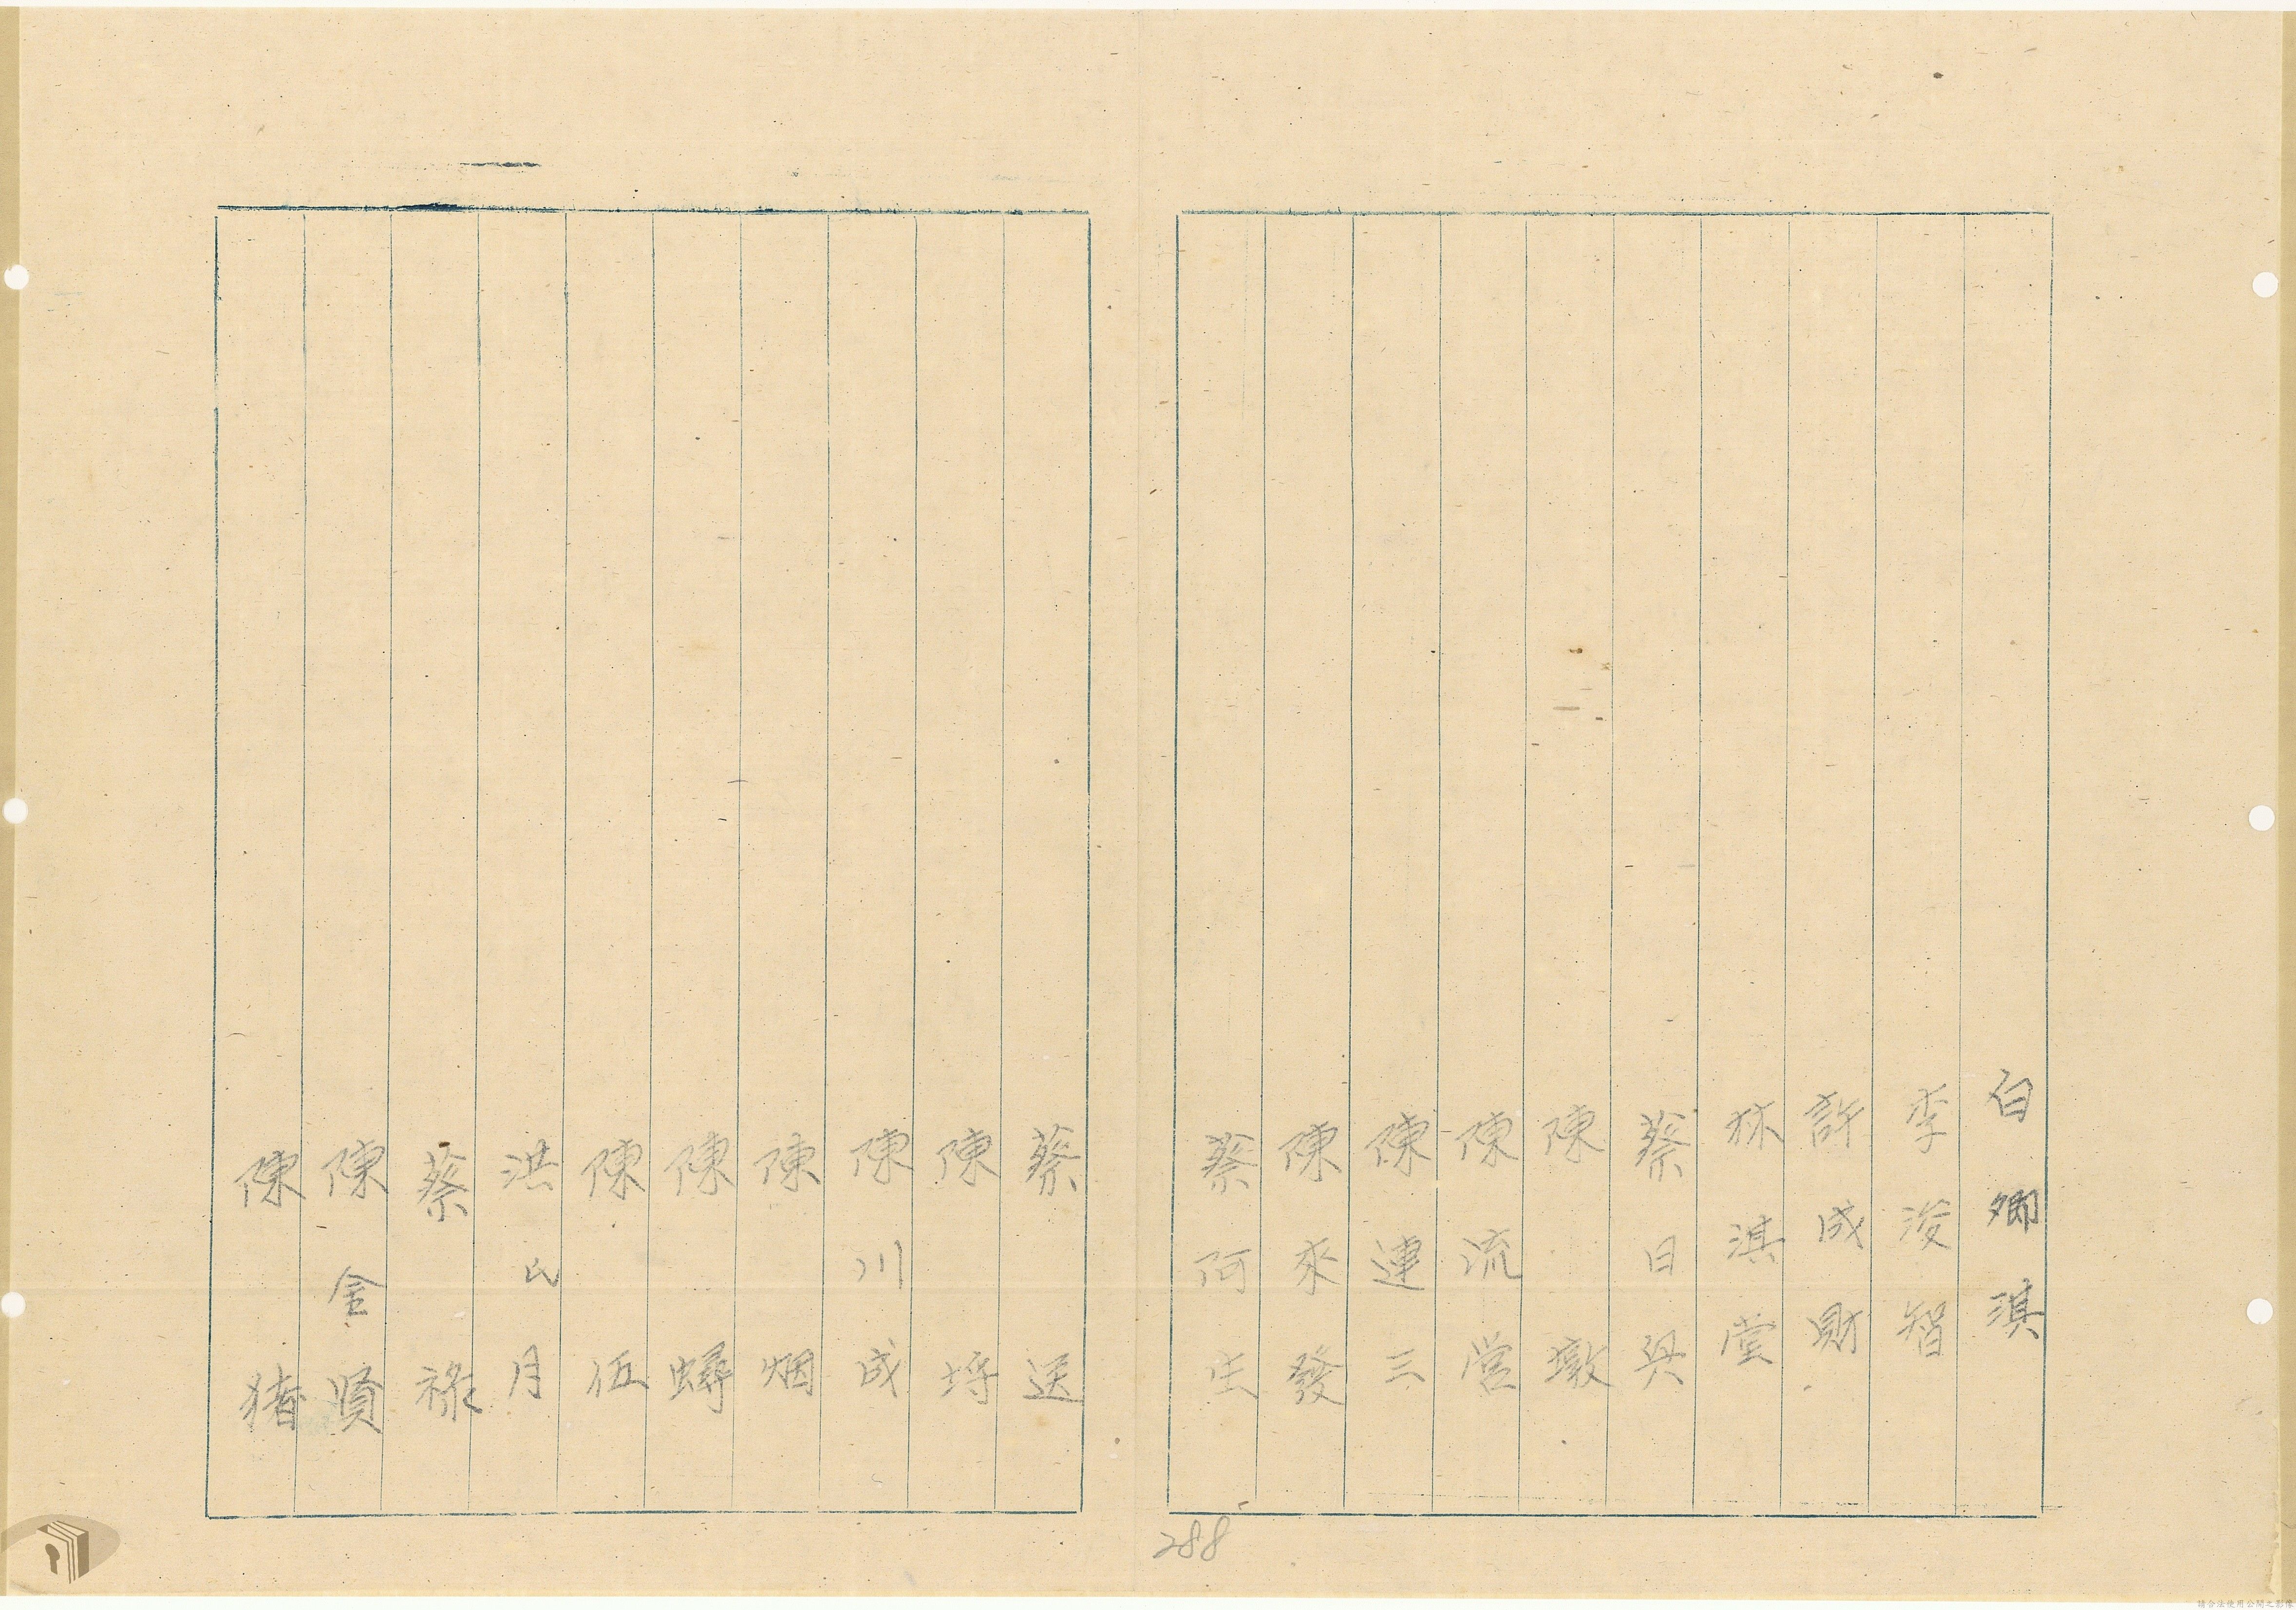 白卿淇
李浚智
許成財
林淇堂
蔡日興
陳墩
陳流営
陳連三
陳來發
蔡阿生
蔡送
陳埓
陳川成
陳烟
陳蟳
陳伍
洪氏月
蔡祿
陳金賢
陳猪
288
請合法使用公開之影像